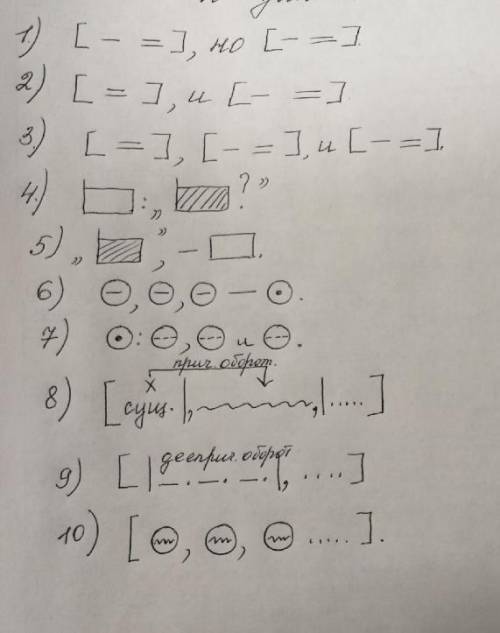 1) [ – = ], но [ – = ].
2) [ = ], и [ – = ]
3) [ = ], [ – = ], и [ – = ].
4) : „ ? ”
5) „ ”, – .
6) , , – .
7) : , и .
прич. оборот.
8) [ х сущ. |, , | ..... ]
дееприч. оборот
9) [ | _._._. |, .... ]
10) [ , , ..... ].